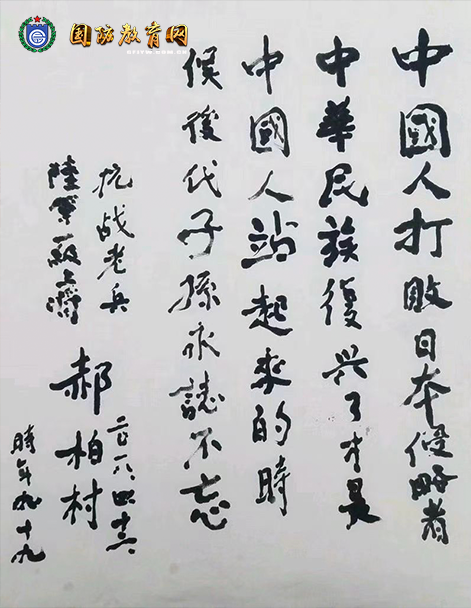 国防教育网
中國人打敗日本侵略者
中華民族復兴了才是
中國人站起來的時
候後代子孫永誌不忘
抗战老兵
陸軍一級上將 郝柏村
二〇一八
時年九十九